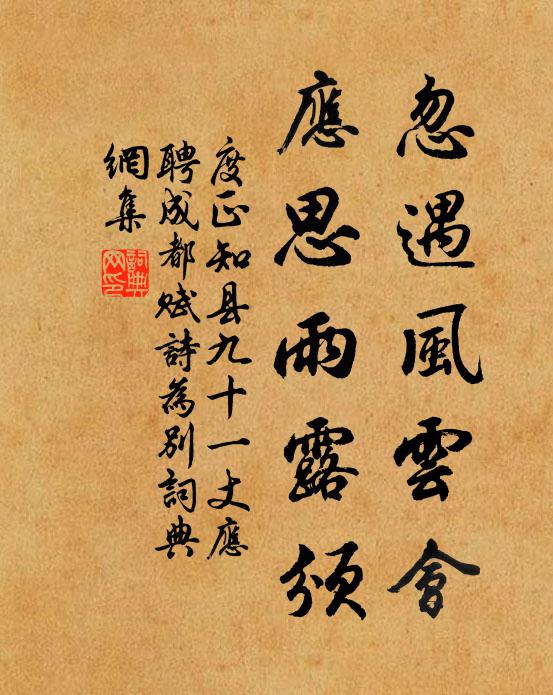 忽遇風雲會
應思雨露頒
度正知县九十一丈應
聘成都赋詩為别詞典
網集
詞典
网印